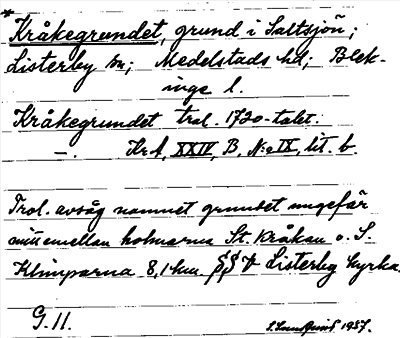 *
Kråkegrundet, grund i Saltsjön;
Listerby sn; Medelstads hd; Blek-
inge l.
Kråkegrundet trol. 1720-talet.
—. Kr A, XXIV, B, N:o IX, lit. b.
Trol. avsåg namnet grundet ungefär
mitt emellan holmarna St. Kråkan o. S.
Klimparna 8,1 km SSV Listerby kyrka.
G. 11.
1957.